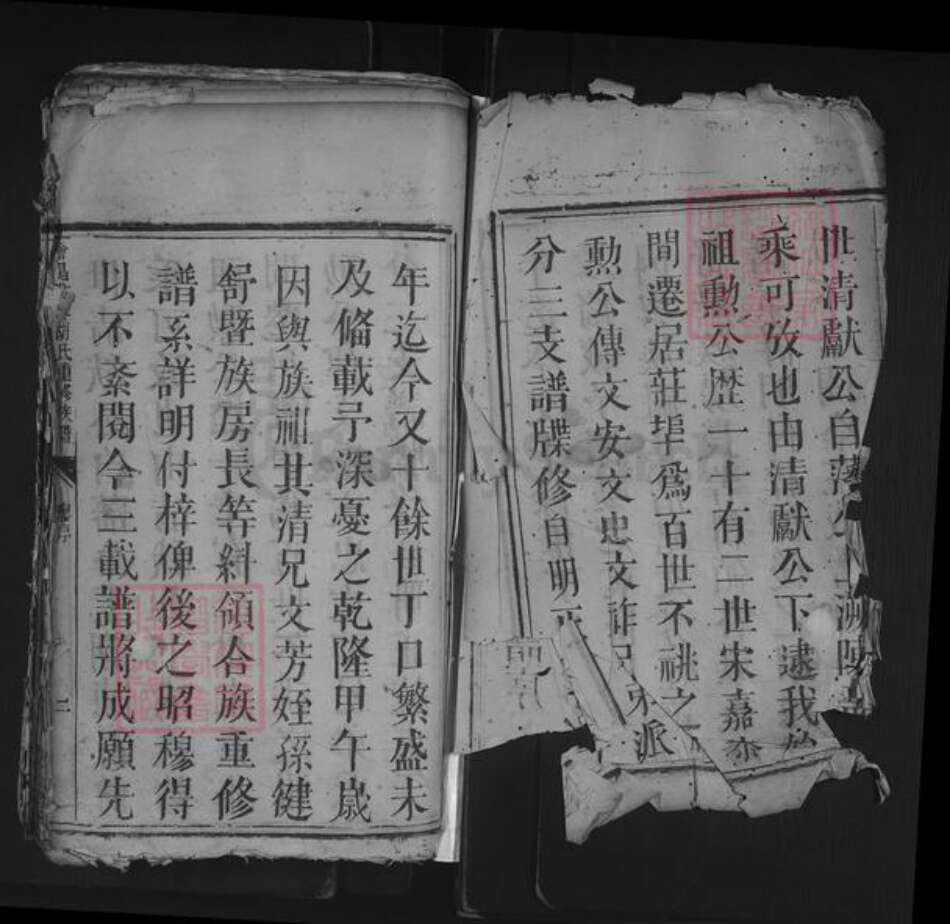 世清獻公自
乘可攷也由清獻公下逮我
祖勳公歷一十有二世宋嘉泰
間遷居莊埠爲百世不祧之
勳公傳文安文忠文 派
分三支譜牒修自明
年迄今又十餘世丁口繁盛未
及俻載予深憂之乾隆甲午嵗
因與族祖其清兄文芳姪孫健
舒暨族房長等糾領合族重修
譜系詳明付梓俾後之昭穆得
以不紊閱今三載譜將成願先
二